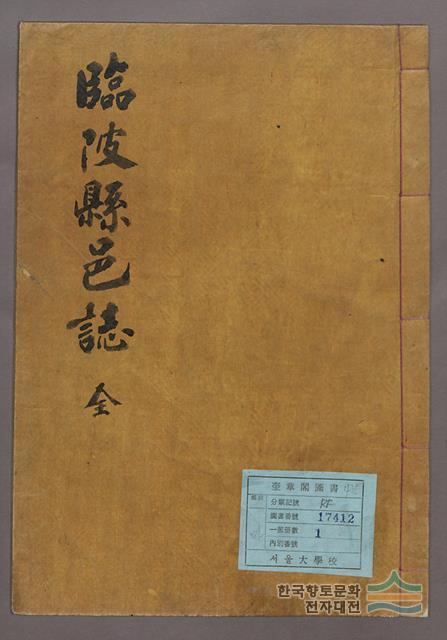 臨陂縣邑誌 全
奎章閣圖書
分類記號
圖書番號 17412
一部冊數 1
內別番號
서울大學校
한국향토문화
전자대전